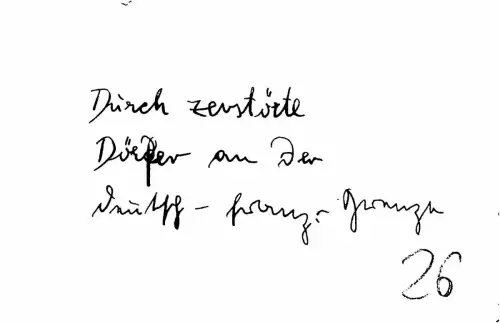 Durch zerstörte
Dörfer an der
deutsch-franz. Grenze
26